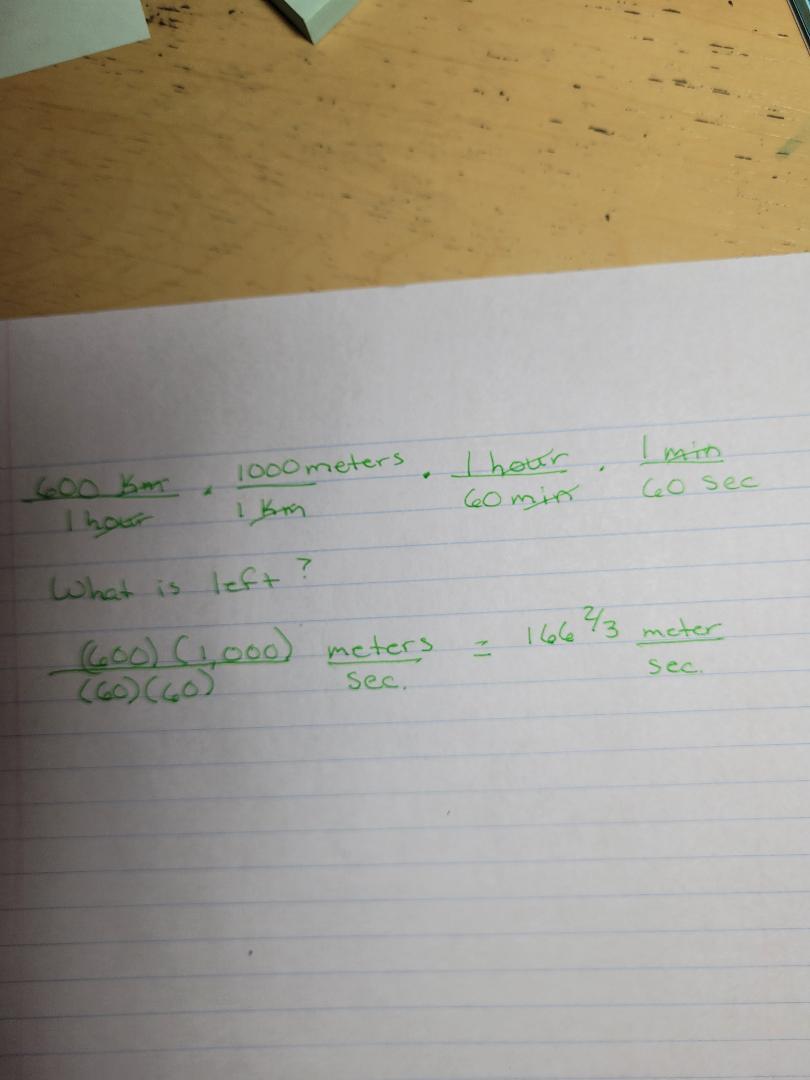 600 Km / 1 hour · 1000 meters / 1 Km · 1 hour / 60 min · 1 min / 60 sec
What is left?
(600)(1,000) / (60)(60) meters / sec. = 166 2/3 meter / sec.